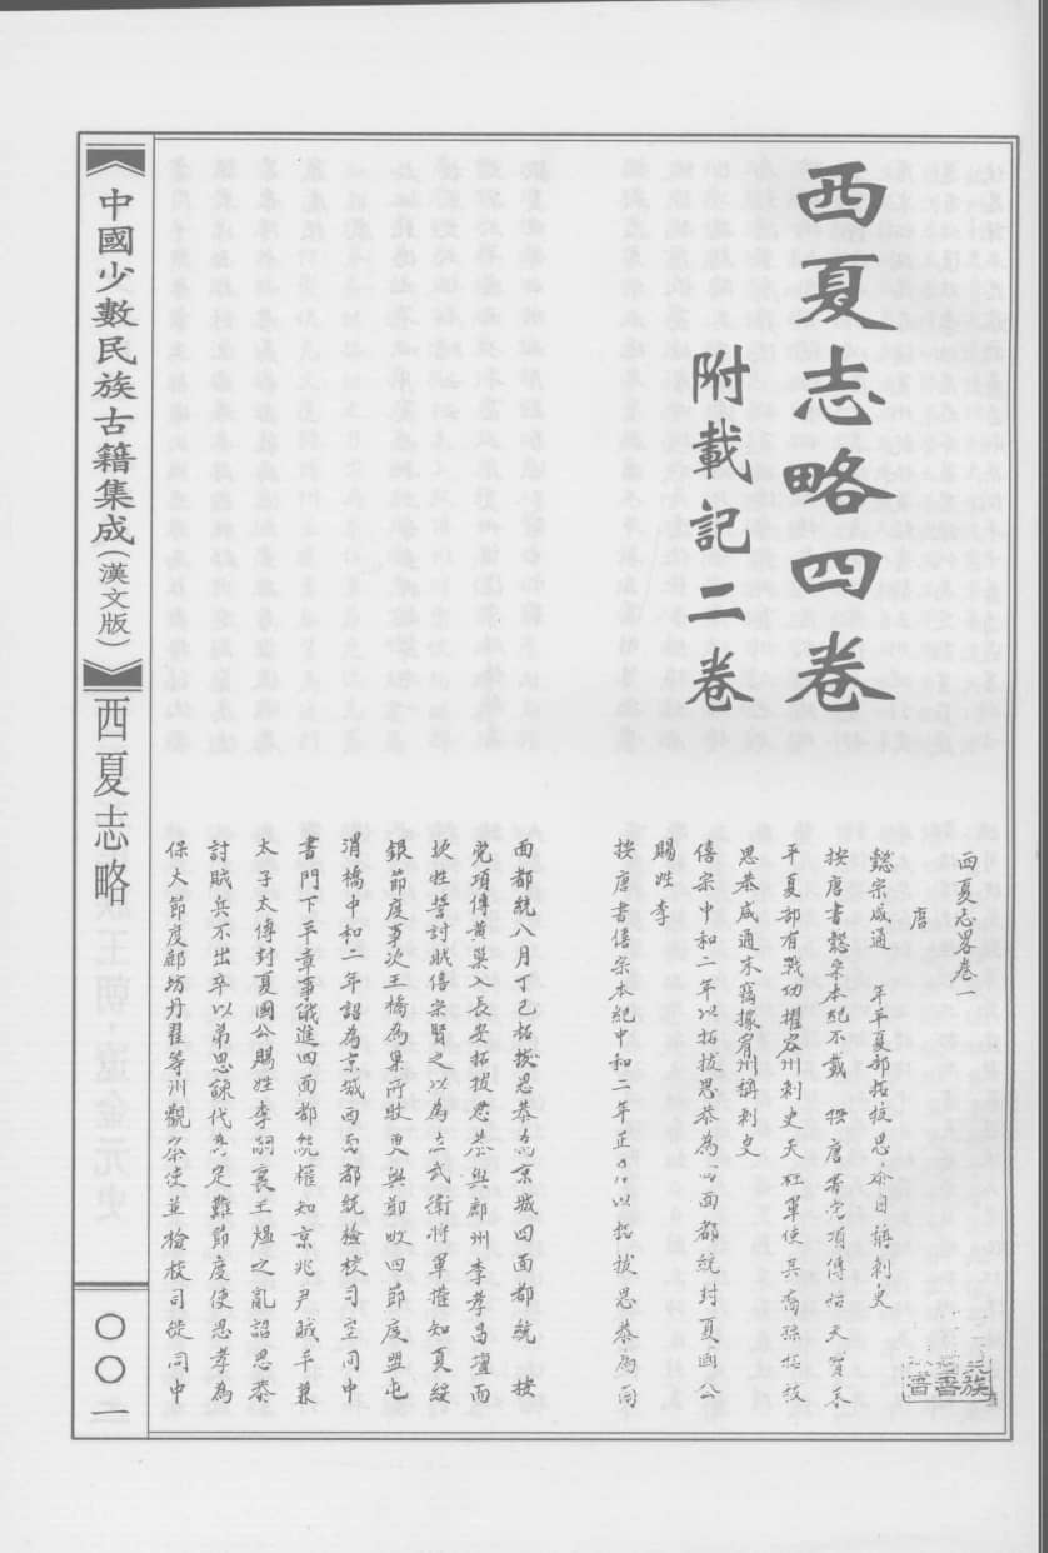 西夏志略四卷
附載記二卷
西夏志畧卷一
唐
懿宗咸通 年平夏部拓拔思恭自稱刺史
按唐書懿宗本紀不載 按唐書党項傳 天寶末
平夏部有戰功擢容州刺史天柱軍使其裔孫拓拔
思恭咸通末竊據宥州稱刺史
僖宗中和二年以拓拔思恭為 面都統封夏國公
賜姓李
按唐書僖宗本紀中和二年正月 以拓拔思恭為
面都統八月丁巳拓拔思恭為京城四面都統 按
党項傳黃巢入長安拓拔思恭與鄜州李孝昌壇而
坎牲誓討賊僖宗賢之以為左武衛將軍權知夏綏
銀節度事次王橋為巢所敗更與鄭畋四節度盟屯
渭橋中和二年詔為京城西面都統檢校司空同中
書門下平章事俄進四面都統權知京兆尹賊平兼
太子太傅封夏國公賜姓李嗣襄王熅之亂詔思恭
討賊兵不出卒以弟思諫代為定難節度使思孝為
保大節度鄜坊丹翟等州觀察使並檢校司徒同中
《中國少數民族古籍集成(漢文版)》
西夏志略
〇〇一